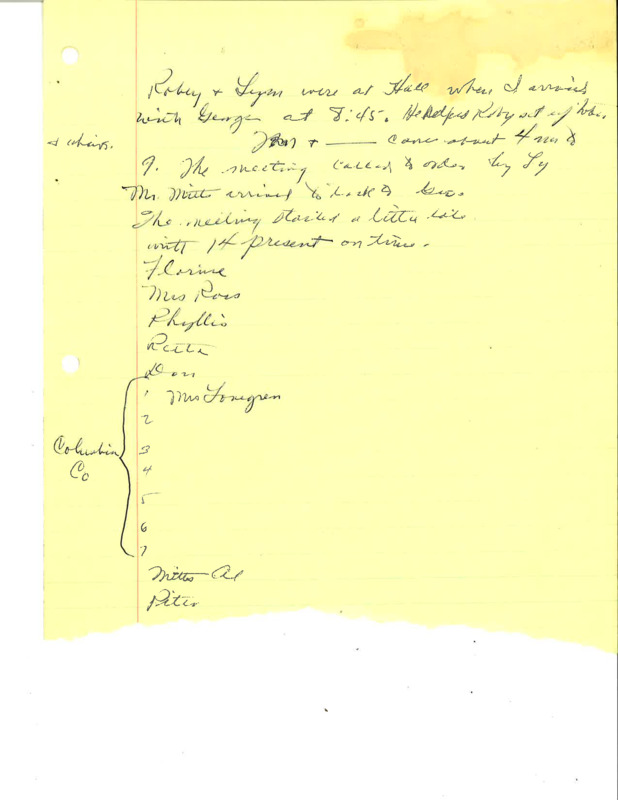 Robey + Lynn were at Hall when I arrived
with George at 8:45. He helped Roby set up tables
+ chairs.
+ —— came about 4 min to
9. The meeting called to order by Ly
Mr. Mitts arrived to
The meeting started a little late
with 14 present on time.
Florine
Mrs Ross
Phyllis
Retta
Don
1 Mrs Lovegren
2
Columbia
3
Co
4
5
6
7
Mitts Al
Peter